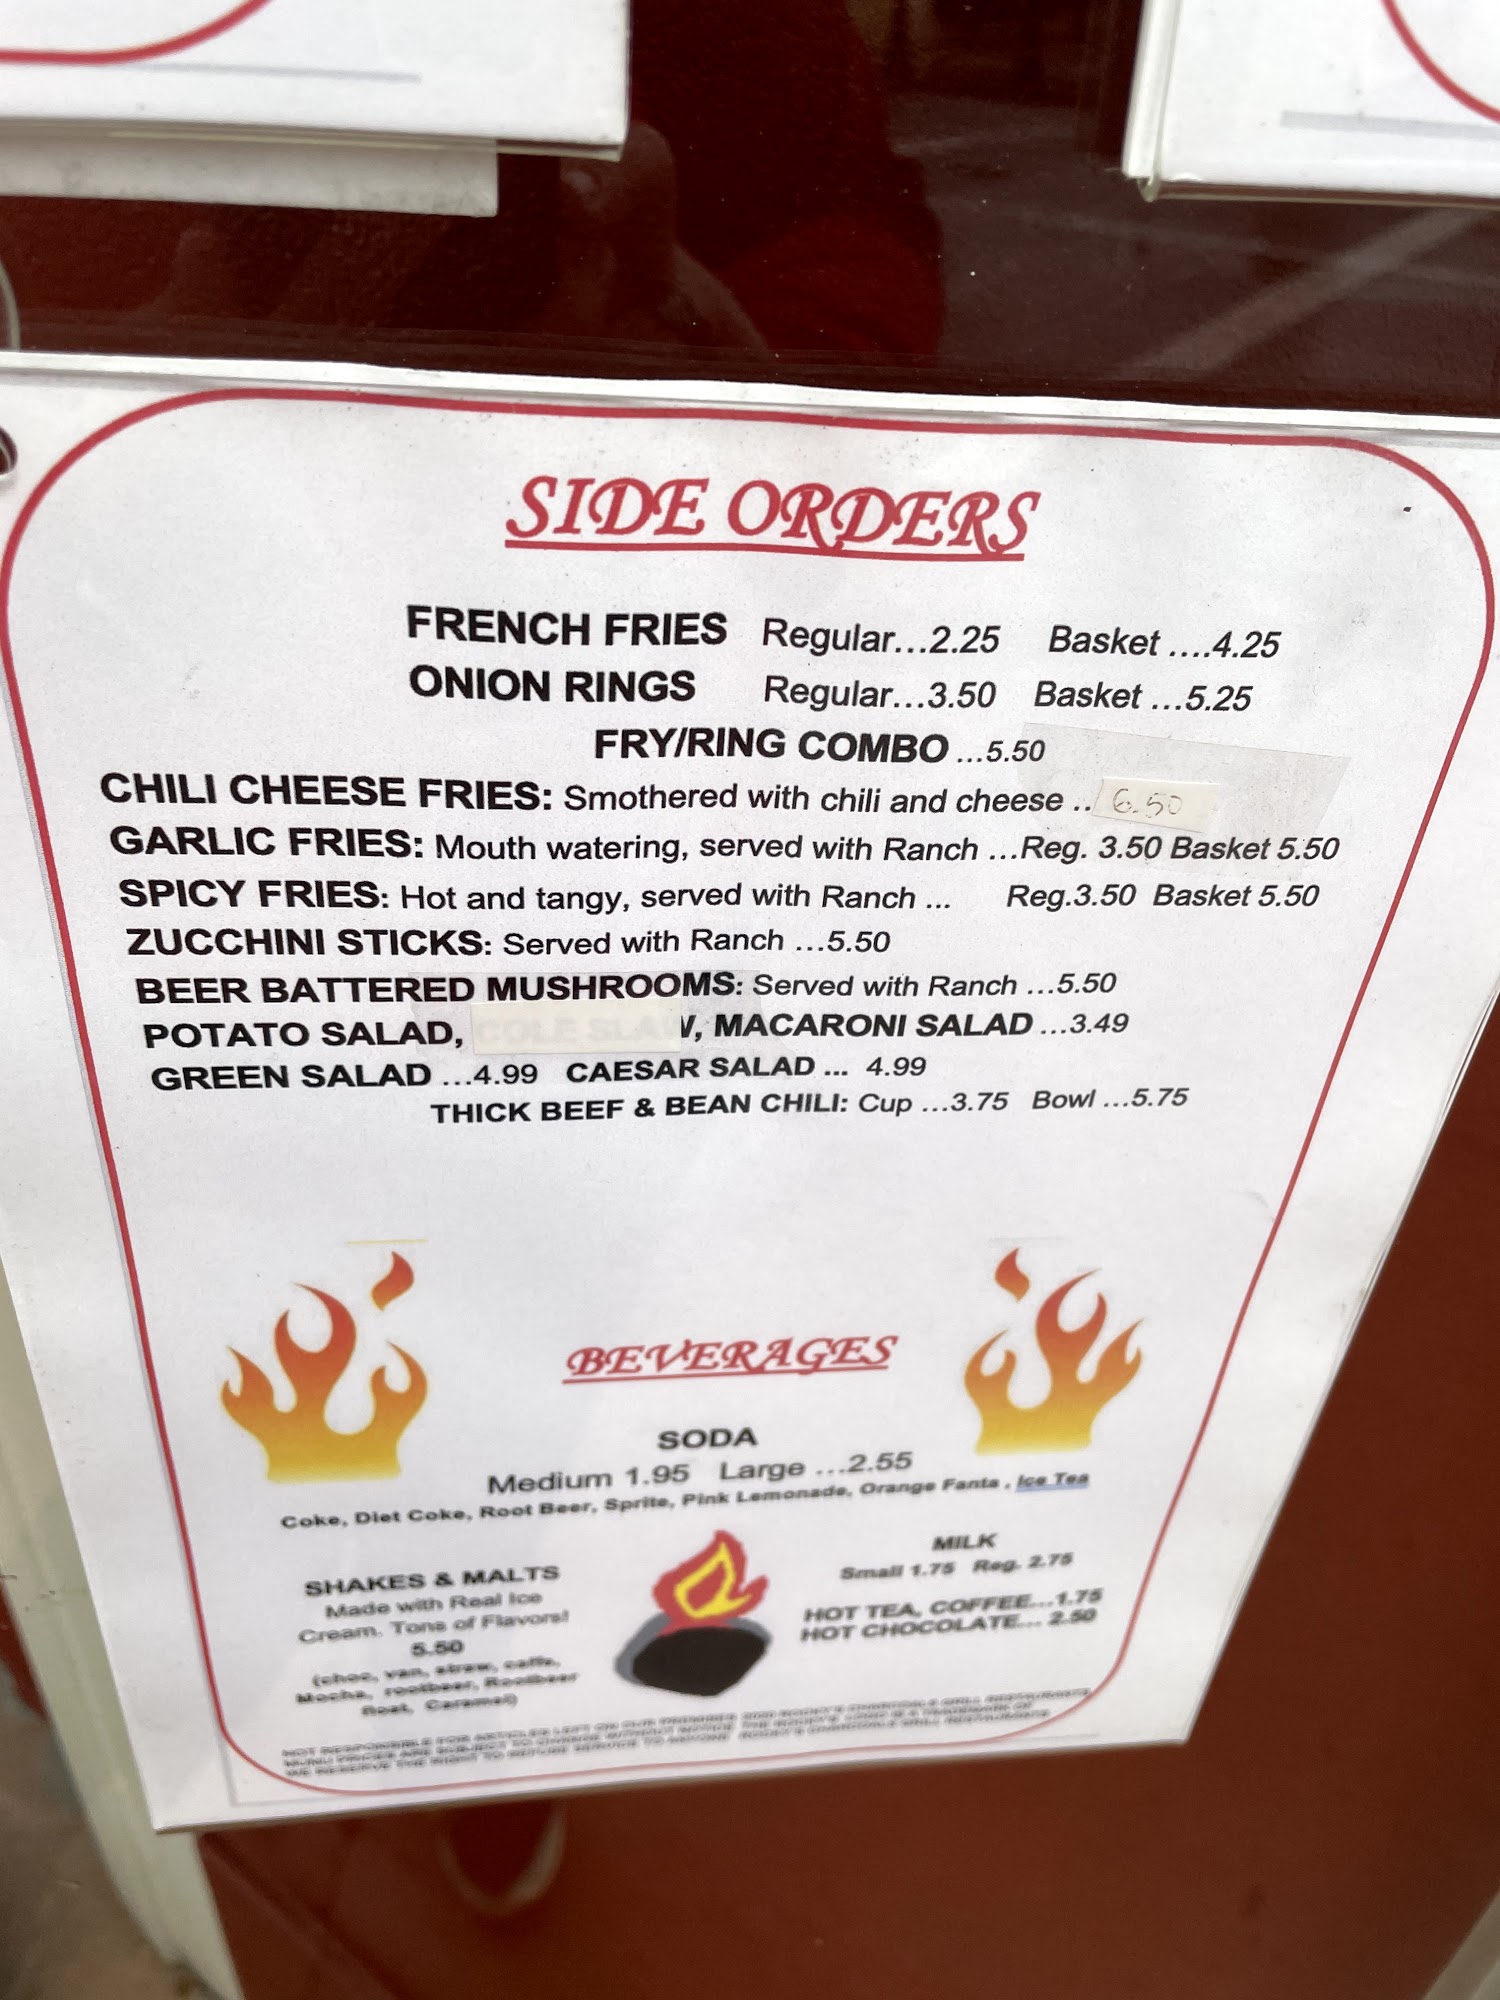 SIDE ORDERS
FRENCH FRIES Regular...2.25 Basket ....4.25
ONION RINGS Regular...3.50 Basket ...5.25
FRY/RING COMBO ...5.50
CHILI CHEESE FRIES: Smothered with chili and cheese .. 6.50
GARLIC FRIES: Mouth watering, served with Ranch ...Reg. 3.50 Basket 5.50
SPICY FRIES: Hot and tangy, served with Ranch ... Reg.3.50 Basket 5.50
ZUCCHINI STICKS: Served with Ranch ...5.50
BEER BATTERED MUSHROOMS: Served with Ranch ...5.50
POTATO SALAD, COLE SLAW, MACARONI SALAD ...3.49
GREEN SALAD ...4.99 CAESAR SALAD ... 4.99
THICK BEEF & BEAN CHILI: Cup ...3.75 Bowl ...5.75
BEVERAGES
SODA
Medium 1.95 Large ...2.55
Coke, Diet Coke, Root Beer, Sprite, Pink Lemonade, Orange Fanta , Ice Tea
SHAKES & MALTS
Made with Real Ice
Cream. Tons of Flavors!
5.50
(choc, van, straw, caffe,
Mocha, rootbeer, Rootbeer
float, Caramel)
MILK
Small 1.75 Reg. 2.75
HOT TEA, COFFEE...1.75
HOT CHOCOLATE... 2.50
NOT RESPONSIBLE FOR ARTICLES LEFT ON OUR PREMISES
MENU PRICES ARE SUBJECT TO CHANGE WITHOUT NOTICE
WE RESERVE THE RIGHT TO REFUSE SERVICE TO ANYONE